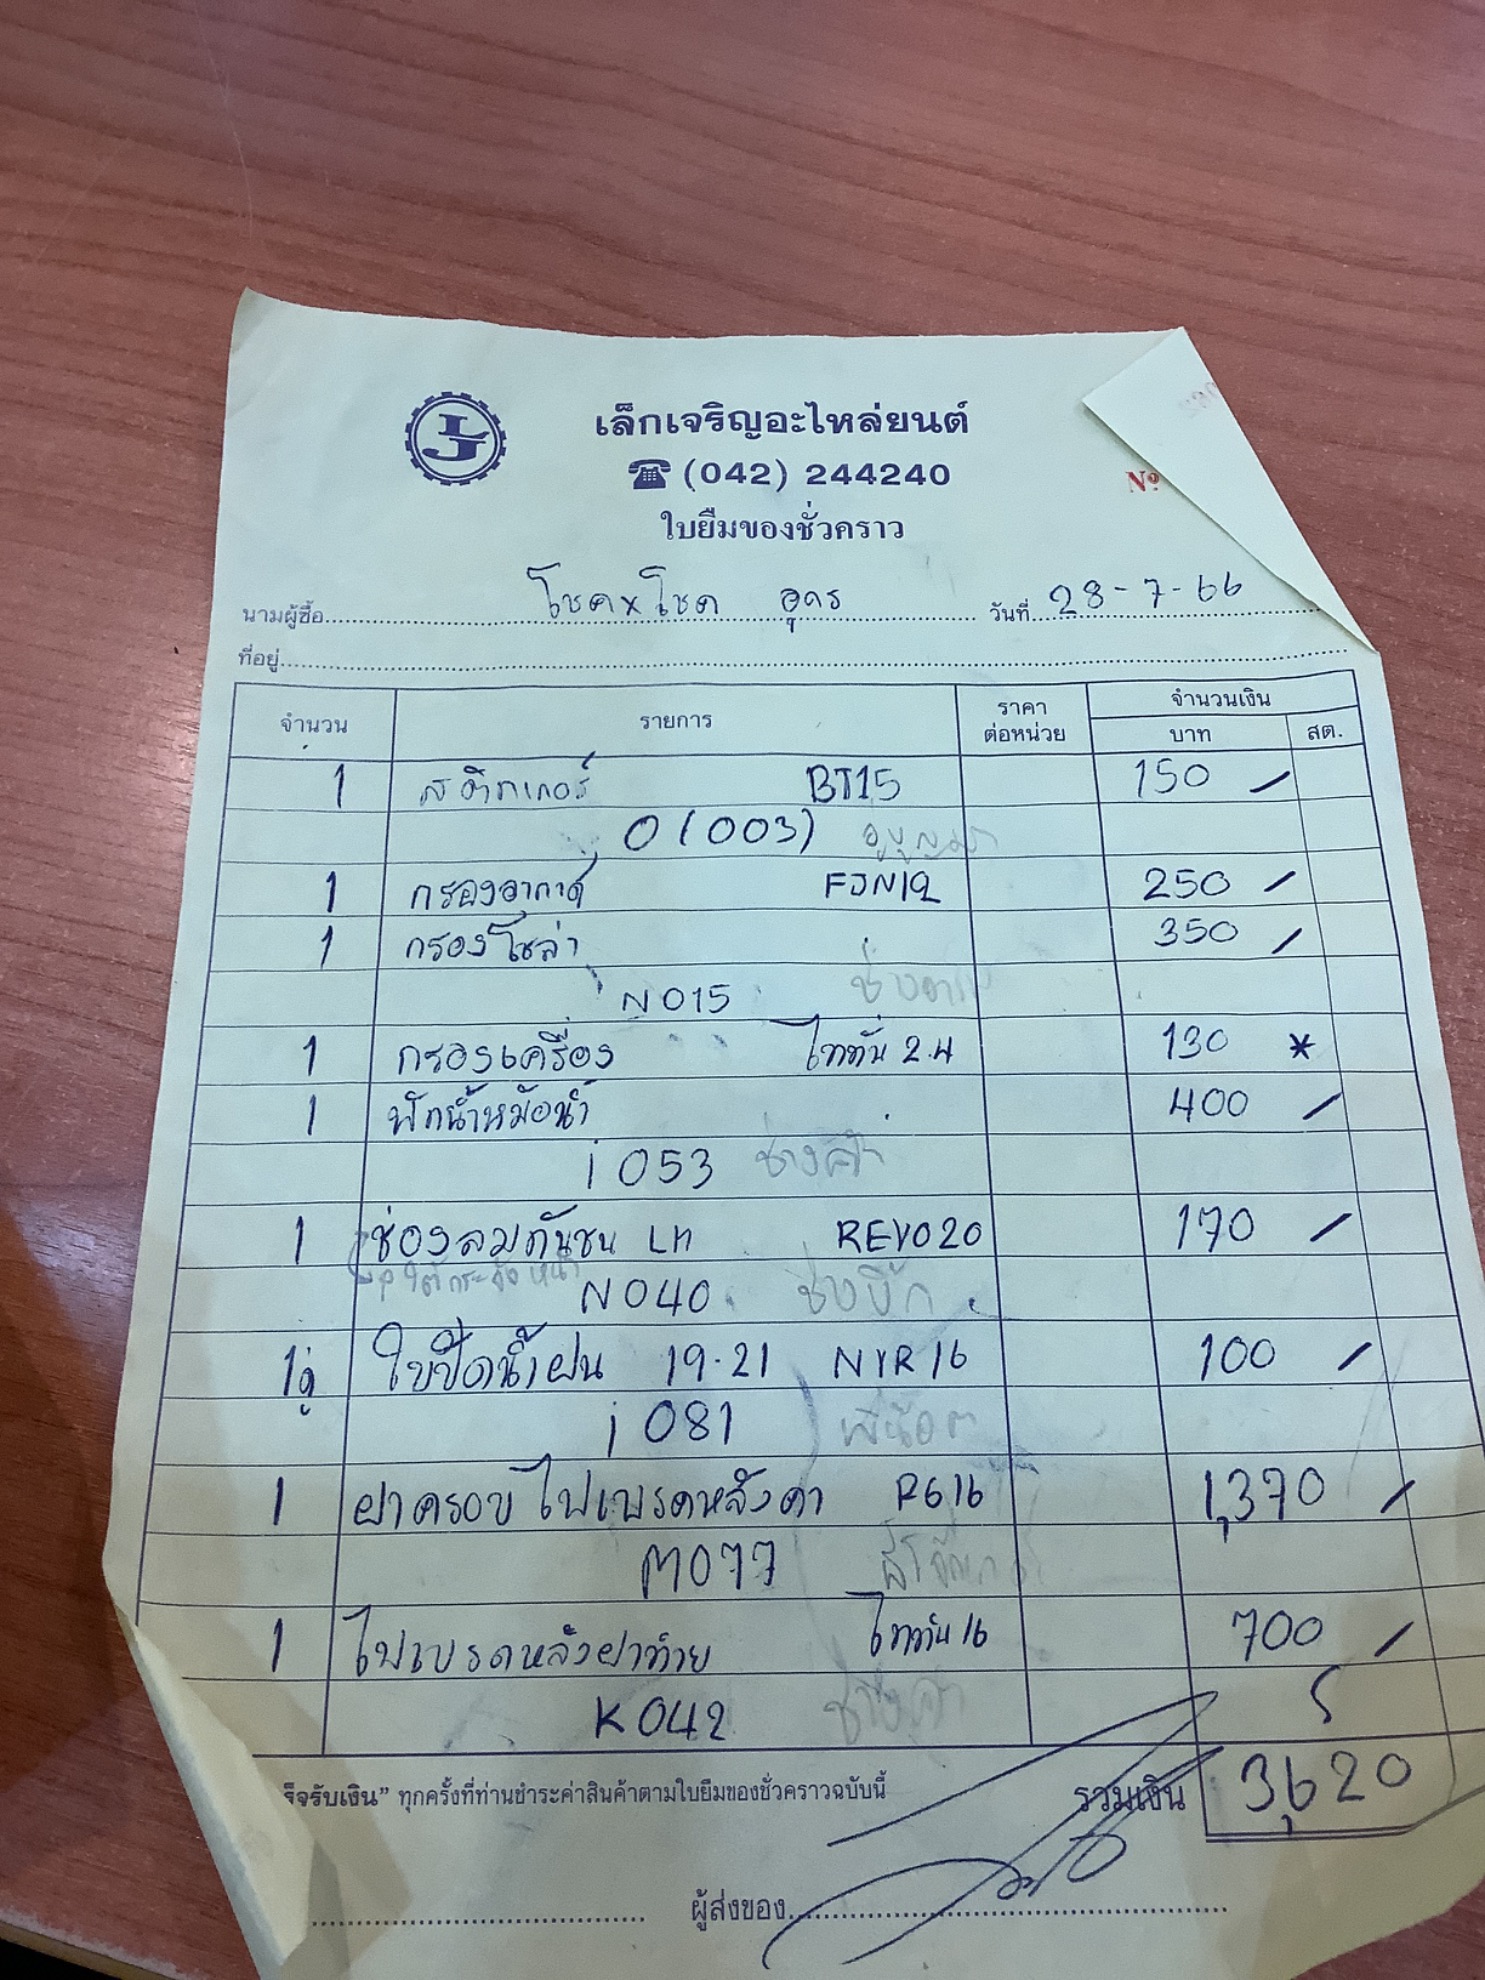 LJ
เล็กเจริญอะไหล่ยนต์
☎ (042) 244240
Nº
ใบยืมของชั่วคราว
นามผู้ซื้อ โชคxโชค อุดร วันที่ 28-7-66
ที่อยู่
จำนวน รายการ ราคาต่อหน่วย จำนวนเงิน
บาท สต.
1 สติกเกอร์ BT15 150 /
O (003)
1 กรองอากาศ FJN12 250 /
1 กรองโซล่า 350 /
N015
1 กรองเครื่อง ไททัน 2.4 130 *
1 พักน้ำหม้อน้ำ 400 /
i 053 ช่าง
1 ช่องลมกันชน LH REVO20 170 /
N040 ช่างบิ๊ก
1คู่ ใบปัดน้ำฝน 19-21 NYR16 100 /
i 081
1 ฝาครอบไฟเบรคหลังคา R616 1,370 /
M077
1 ไฟเบรคหลังฝาท้าย ไททัน 16 700 /
K042 ช่าง
ร็จรับเงิน” ทุกครั้งที่ท่านชำระค่าสินค้าตามใบยืมของชั่วคราวฉบับนี้ รวมเงิน 3,620
ผู้ส่งของ